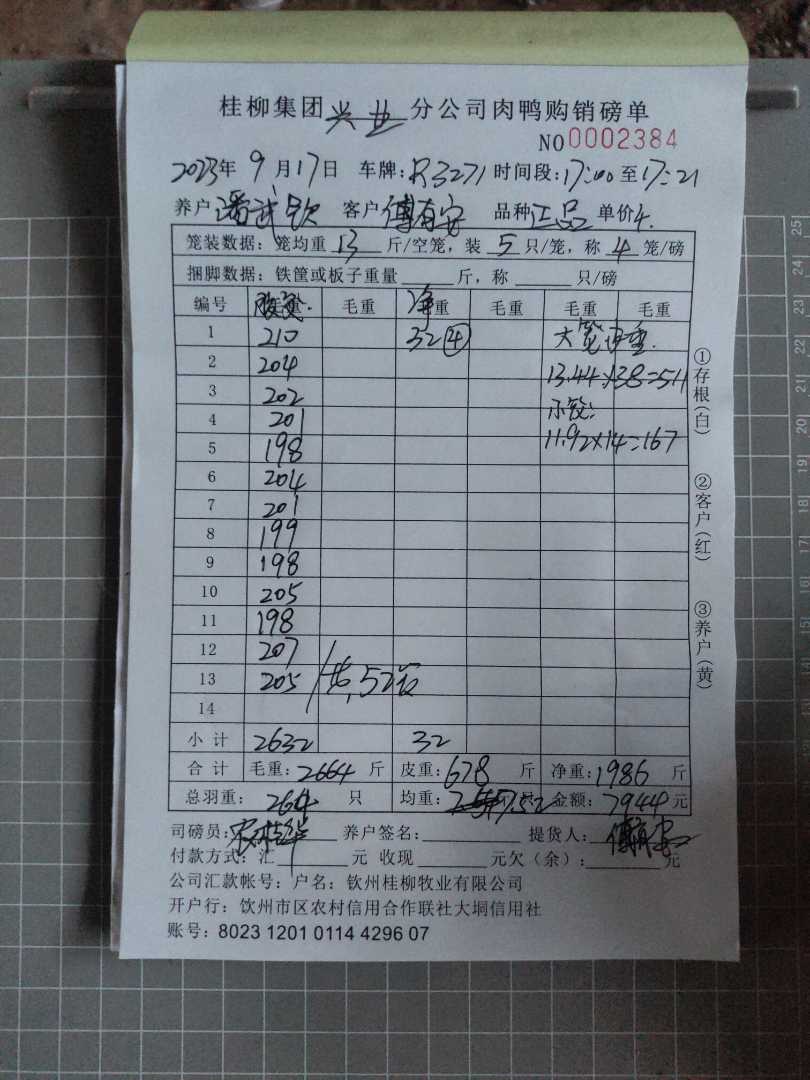 桂柳集团兴业分公司肉鸭购销磅单
NO 0002384
2023年 9月17日 车牌:R3271 时间段:17:00至17:21
养户潘武钦 客户傅有安 品种正品 单价4.
笼装数据:笼均重 13 斤/空笼,装 5 只/笼,称 4 笼/磅
捆脚数据:铁筐或板子重量 斤,称 只/磅
编号 毛重 净重 毛重 毛重 毛重
1 210 32④ 大笼
2 204 13.44×38=511
3 202
4 201 11.92×14=167
5 198
6 204
7 201
8 199
9 198
10 205
11 198
12 207
13 205 共,52
14
小计 2632 32
合计 毛重:2664斤 皮重:678斤 净重:1986斤
总羽重:264只 均重:7.52 金额:7944元
司磅员: 养户签名: 提货人:傅有安
付款方式:汇 元 收现 元欠(余): 元
公司汇款帐号:户名:钦州桂柳牧业有限公司
开户行:饮州市区农村信用合作联社大垌信用社
账号:8023 1201 0114 4296 07
①存根(白)
②客户(红)
③养户(黄)